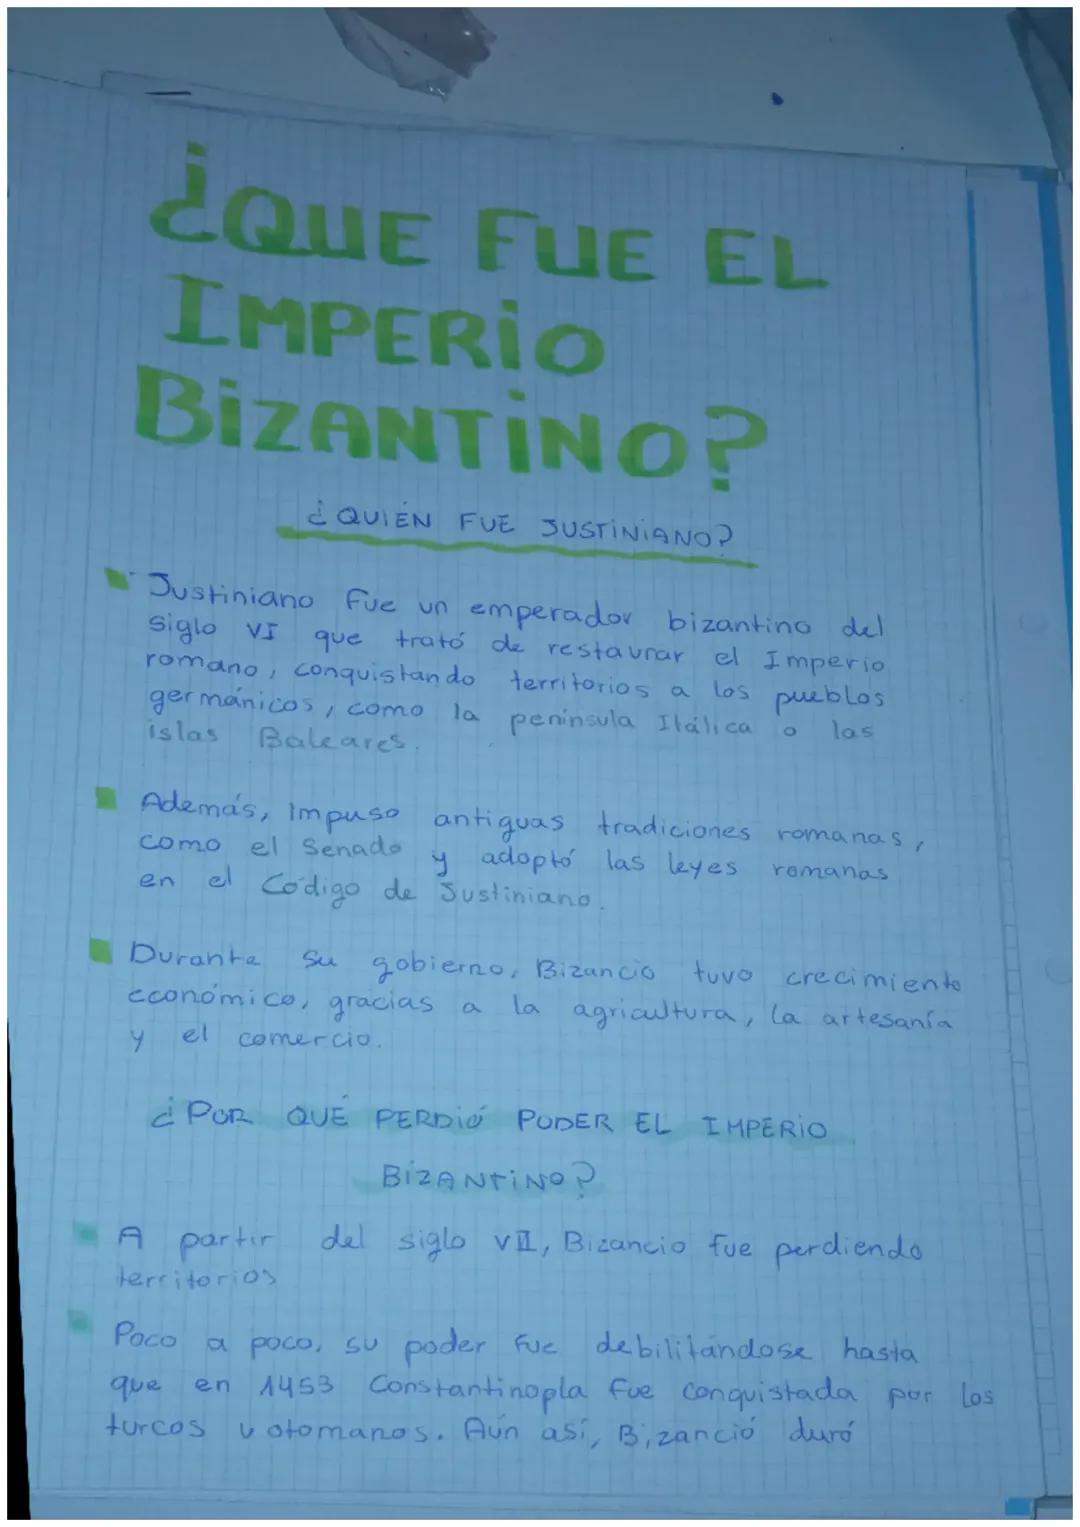 ¿QUE FUE EL
IMPERIO
BIZANTINO?
¿QUIÉN FUE JUSTINIANO?
Justiniano fue un emperador bizantino del
siglo VI que trató de restaurar el Imperio
romano, conquistando territorios a los pueblos
germánicos, como la península Itálica o las
islas Baleares.
Además, impuso antiguas tradiciones romanas,
como el Senado y adoptó las leyes romanas
en el Código de Justiniano.
Durante su gobierno, Bizancio tuvo crecimiento
económico, gracias a la agricultura, la artesanía
y el comercio.
¿POR QUÉ PERDIÓ PODER EL IMPERIO
BIZANTINO?
A partir del siglo VII, Bizancio fue perdiendo
territorios
Poco a poco, su poder fue debilitándose hasta
que en 1453 Constantinopla fue conquistada por los
turcos u otomanos. Aún así, Bizanció duró